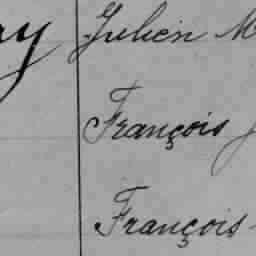 Julien M
François J
François